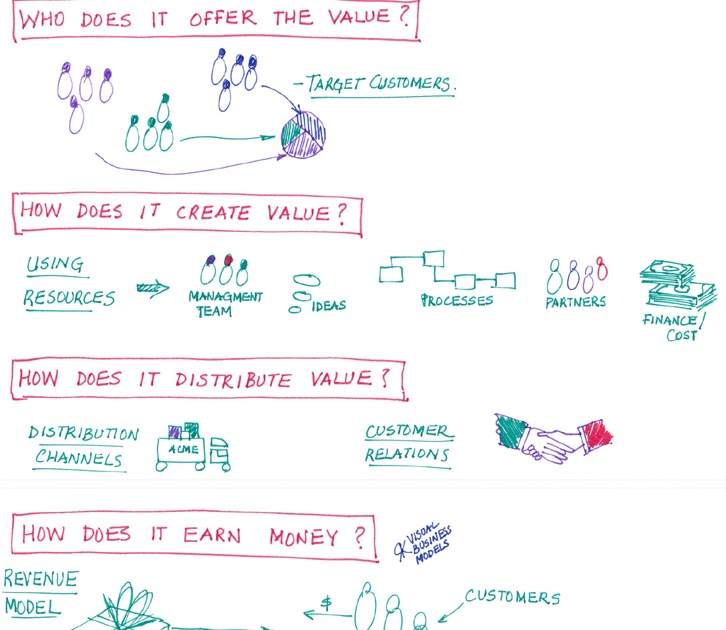 WHO DOES IT OFFER THE VALUE?
- TARGET CUSTOMERS.
HOW DOES IT CREATE VALUE?
USING
RESOURCES
MANAGMENT
TEAM
IDEAS
PROCESSES
PARTNERS
FINANCE/
COST
HOW DOES IT DISTRIBUTE VALUE?
DISTRIBUTION
CHANNELS
ACME
CUSTOMER
RELATIONS
HOW DOES IT EARN MONEY?
VISUAL
BUSINESS
MODELS
REVENUE
MODEL
$
CUSTOMERS